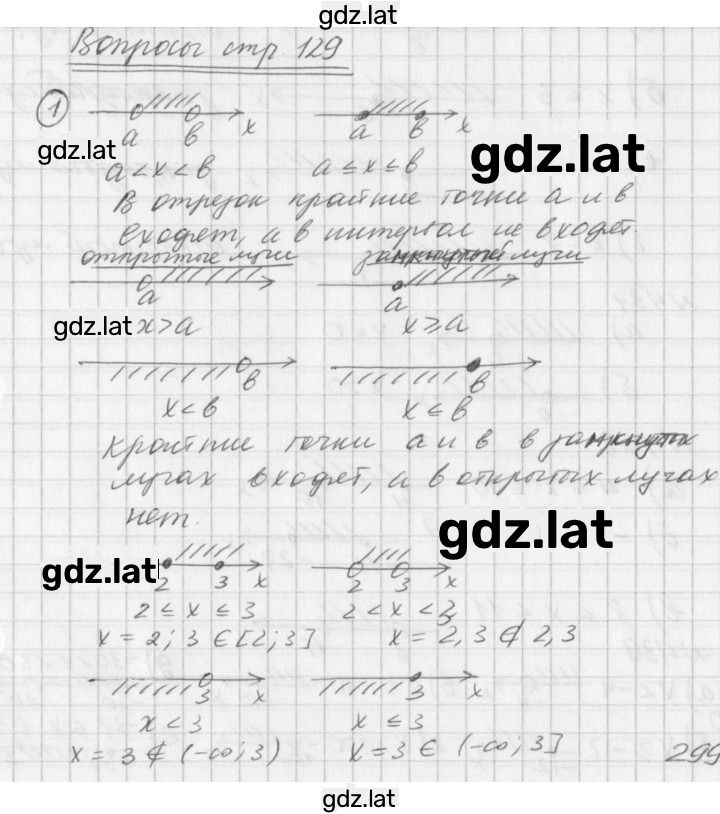 gdz.lat
Вопросы стр 129
1
a в x a в x
gdz.lat
gdz.lat
a < x < в a ≤ x ≤ в
В отрезок крайние точки a и в
входят, а в интервал не входят.
открытые лучи замкнутый лучи
a a
gdz.lat
x > a x ⩾ a
в в
x < в x ≤ в
Крайние точки a и в в замкнутых
лучах входят, а в открытых лучах
нет.
gdz.lat
gdz.lat
2 3 x 2 3 x
2 ≤ x ≤ 3 2 < x < 3
x = 2; 3 ∈ [2; 3] x = 2, 3 ∉ 2, 3
3 x 3 x
x < 3 x ≤ 3
x = 3 ∉ (-∞; 3) x = 3 ∈ (-∞; 3]
299
gdz.lat